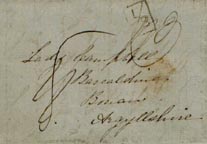 Lady Campbell
Barcaldine
Bonaw
Argyllshire